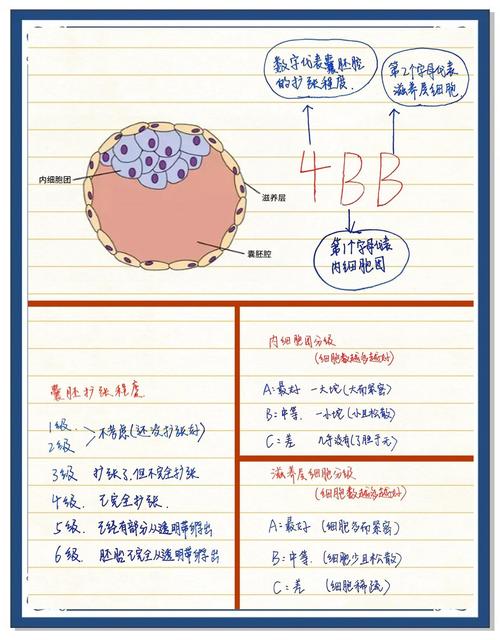 数字代表囊胚腔
的扩张程度.
第2个字母代表
滋养层细胞
4BB
内细胞团
滋养层
囊胚腔
第1个字母代表
内细胞团
囊胚扩张程度
1级.
2级
不考虑(还没扩张好)
3级 扩张了但不完全扩张
4级. 已完全扩张.
5级. 已经有部分从透明带孵出
6级. 胚胎已完全从透明带孵出
内细胞团分级
(细胞数越多越好)
A:最好 一大坨(大而紧密)
B:中等. 一小坨(小且松散)
C:差 几乎没有(了胜于无)
滋养层细胞分级
(细胞数越多越好)
A:最好 (细胞多而紧密)
B:中等. (细胞少且松散)
C:差 (细胞稀疏)